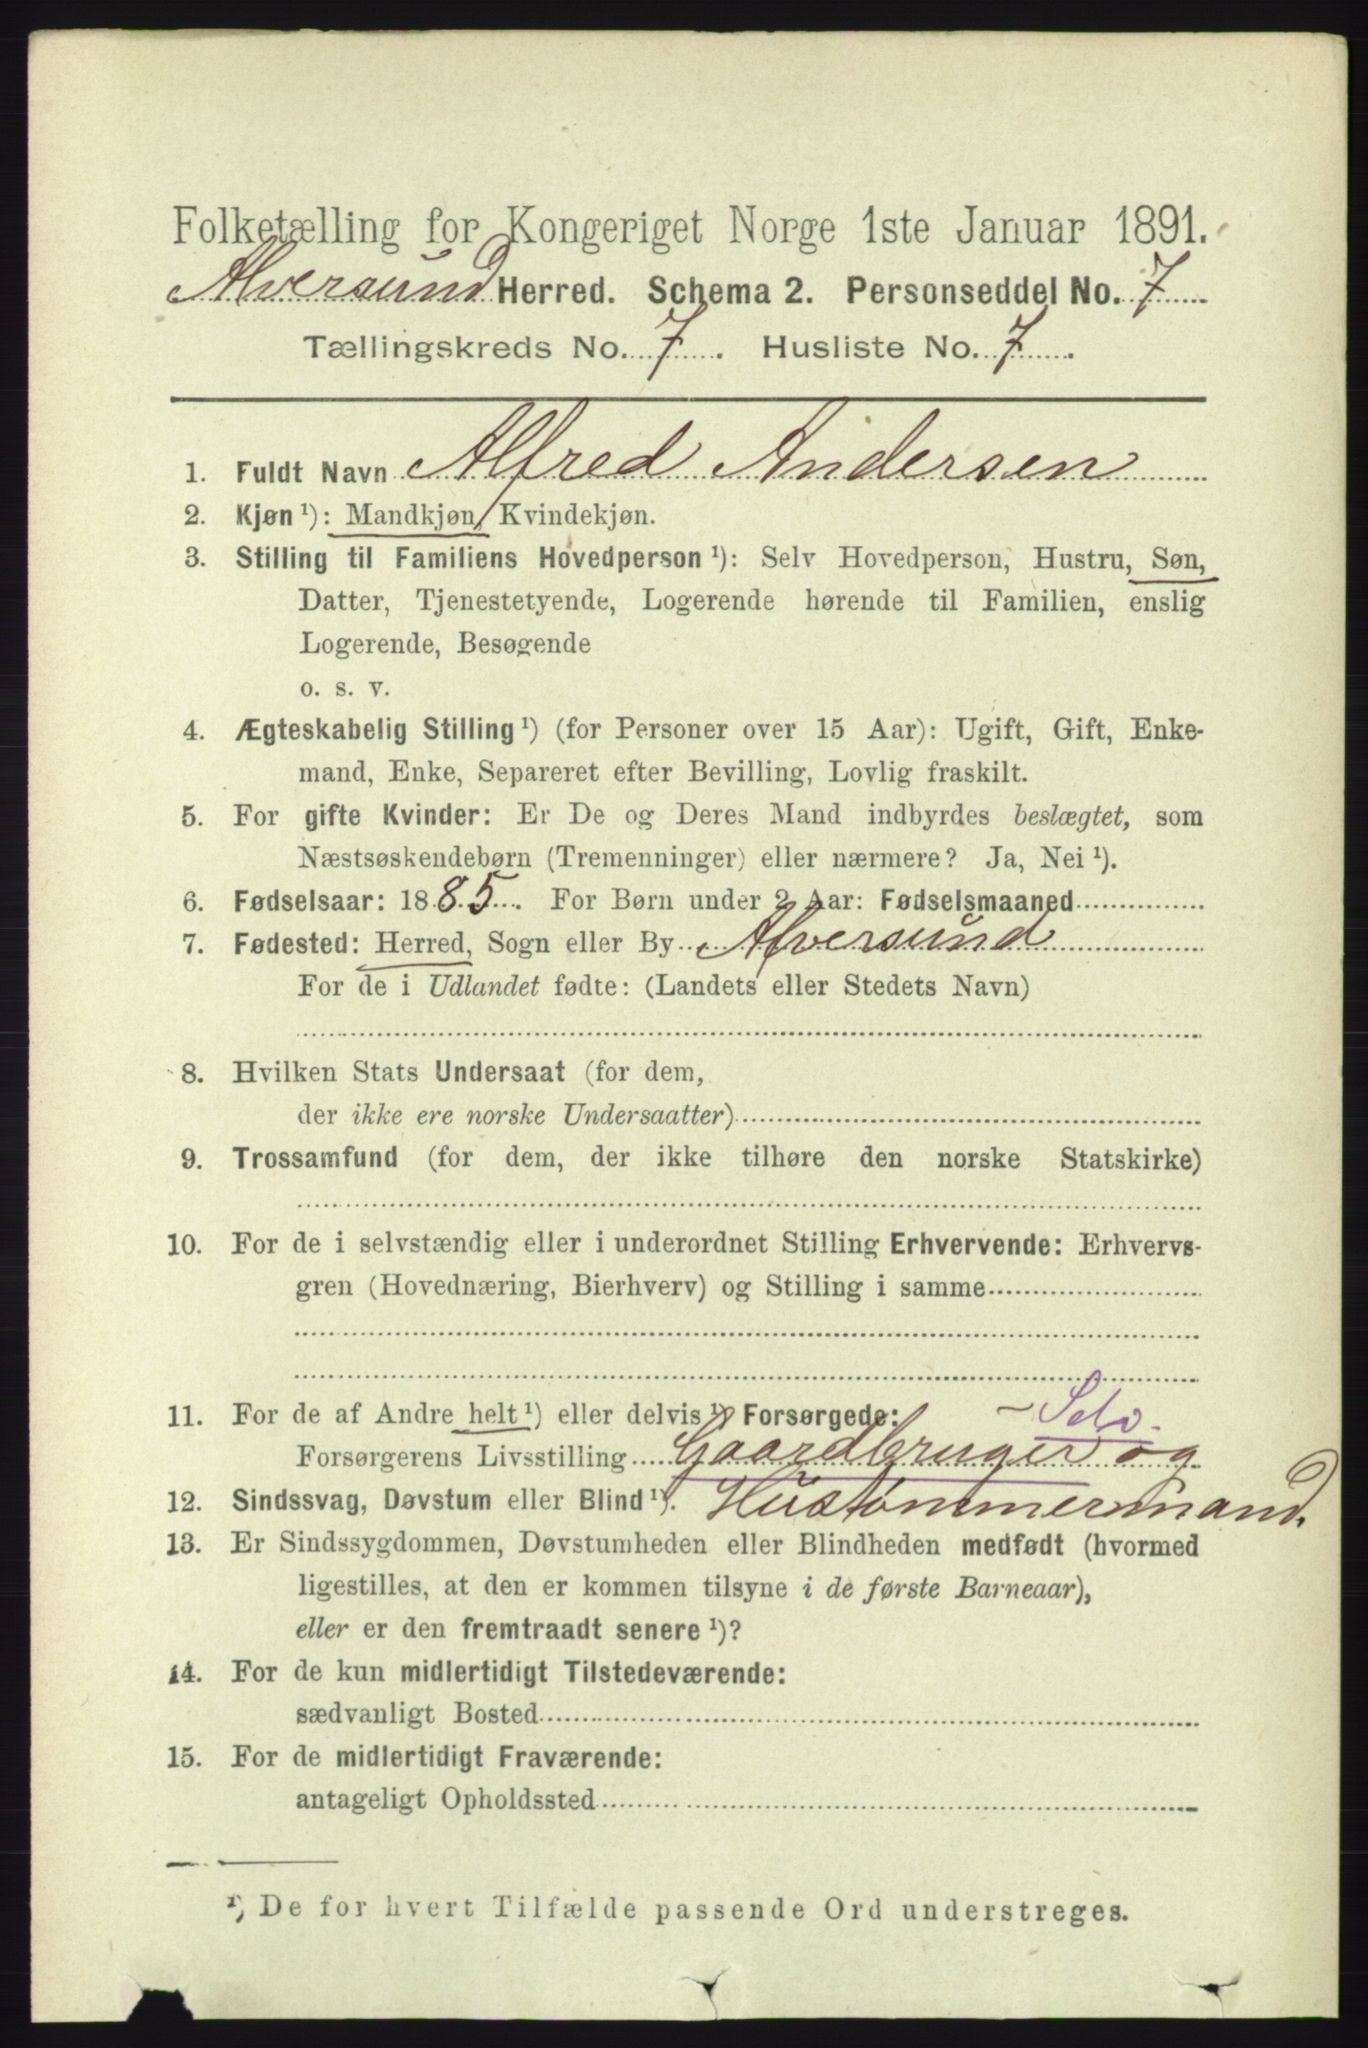 Folketælling for Kongeriget Norge 1ste Januar 1891.
Alversund Herred. Schema 2. Personseddel No. 7
Tællingskreds No. 7. Husliste No. 7.
1. Fuldt Navn Alfred Andersen
2. Kjøn ¹): Mandkjøn, Kvindekjøn.
3. Stilling til Familiens Hovedperson ¹): Selv Hovedperson, Hustru, Søn,
Datter, Tjenestetyende, Logerende hørende til Familien, enslig
Logerende, Besøgende
o. s. v.
4. Ægteskabelig Stilling ¹) (for Personer over 15 Aar): Ugift, Gift, Enke-
mand, Enke, Separeret efter Bevilling, Lovlig fraskilt.
5. For gifte Kvinder: Er De og Deres Mand indbyrdes beslægtet, som
Næstsøskendebørn (Tremenninger) eller nærmere? Ja, Nei ¹).
6. Fødselsaar: 1885. For Børn under 2 Aar: Fødselsmaaned
7. Fødested: Herred, Sogn eller By Alversund
For de i Udlandet fødte: (Landets eller Stedets Navn)
8. Hvilken Stats Undersaat (for dem,
der ikke ere norske Undersaatter)
9. Trossamfund (for dem, der ikke tilhøre den norske Statskirke)
10. For de i selvstændig eller i underordnet Stilling Erhvervende: Erhvervs-
gren (Hovednæring, Bierhverv) og Stilling i samme
11. For de af Andre helt ¹) eller delvis ¹) Forsørgede: - Selv.
Forsørgerens Livsstilling Gaardbruger og
12. Sindssvag, Døvstum eller Blind ¹). Hustømmermand.
13. Er Sindssygdommen, Døvstumheden eller Blindheden medfødt (hvormed
ligestilles, at den er kommen tilsyne i de første Barneaar),
eller er den fremtraadt senere ¹)?
14. For de kun midlertidigt Tilstedeværende:
sædvanligt Bosted
15. For de midlertidigt Fraværende:
antageligt Opholdssted
¹) De for hvert Tilfælde passende Ord understreges.